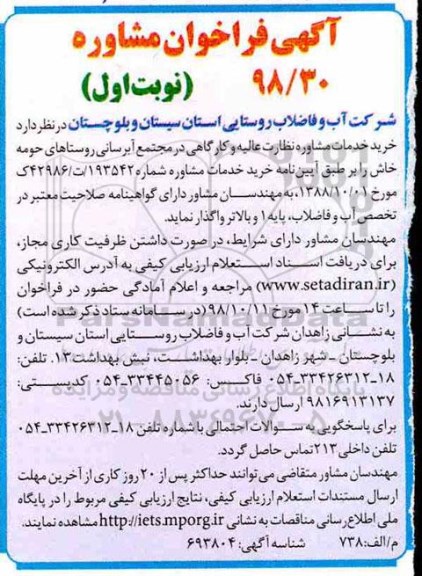 آگهی فراخوان مشاوره
۹۸/۳۰ (نوبت اول)
شرکت آب و فاضلاب روستایی استان سیستان و بلوچستان در نظر دارد
خرید خدمات مشاوره نظارت عالیه و کارگاهی در مجتمع آبرسانی روستاهای حومه
خاش را بر طبق آیین‌نامه خرید خدمات مشاوره شماره ۱۹۳۵۴۲/ت/۴۲۹۸۶ک
مورخ ۱۳۸۸/۱۰/۰۱، به مهندسان مشاور دارای گواهینامه صلاحیت معتبر در
تخصص آب و فاضلاب، پایه ۱ و بالاتر واگذار نماید.
مهندسان مشاور دارای شرایط، در صورت داشتن ظرفیت کاری مجاز،
برای دریافت اسناد استعلام ارزیابی کیفی به آدرس الکترونیکی
(www.setadiran.ir) مراجعه و اعلام آمادگی حضور در فراخوان
را تا ساعت ۱۴ مورخ ۹۸/۱۰/۱۱ (در سامانه ستاد ذکر شده است)
به نشانی زاهدان شرکت آب و فاضلاب روستایی استان سیستان و
بلوچستان - شهر زاهدان - بلوار بهداشت، نبش بهداشت ۱۳. تلفن:
۱۸-۳۳۴۲۶۳۱۲-۰۵۴ فاکس: ۳۳۴۴۵۰۵۶-۰۵۴ کدپستی:
۹۸۱۶۹۱۳۱۳۷ ارسال دارند.
برای پاسخگویی به سوالات احتمالی با شماره تلفن ۱۸-۳۳۴۲۶۳۱۲-۰۵۴
تلفن داخلی ۲۱۳ تماس حاصل گردد.
مهندسان مشاور متقاضی می‌توانند حداکثر پس از ۲۰ روز کاری از آخرین مهلت
ارسال مستندات استعلام ارزیابی کیفی، نتایج ارزیابی کیفی مربوط را در پایگاه
ملی اطلاع رسانی مناقصات به نشانی http://iets.mporg.ir مشاهده نمایند.
م/الف: ۷۳۸ شناسه آگهی: ۶۹۳۸۰۴